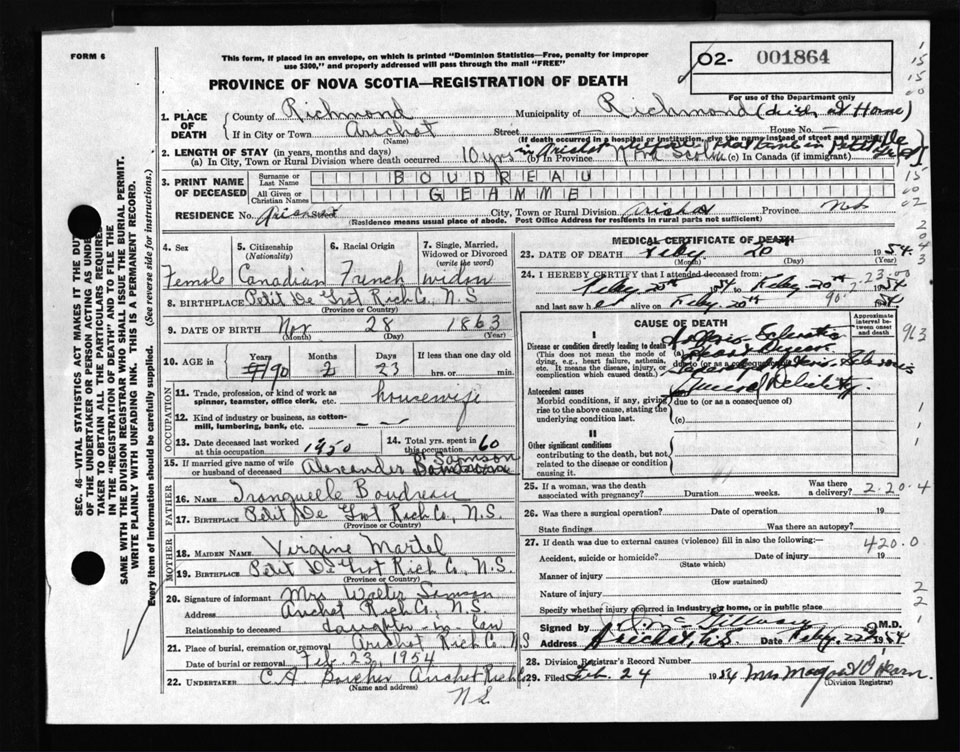 FORM 6
This form, if placed in an envelope, on which is printed "Dominion Statistics—Free, penalty for improper
use $300," and properly addressed will pass through the mail "FREE"
PROVINCE OF NOVA SCOTIA—REGISTRATION OF DEATH
02- 001864
For use of the Department only
1. PLACE OF DEATH
County of Richmond Municipality of Richmond (died at Home)
If in City or Town Arichat Street House No.
(Name) (If death occurred in a hospital or institution, give the name instead of street and number)
2. LENGTH OF STAY (in years, months and days)
(a) In City, Town or Rural Division where death occurred 10 yrs in Arichat (b) In Province Nova Scotia (c) In Canada (if immigrant)
3. PRINT NAME OF DECEASED
Surname or Last Name BOUDREAU
All Given or Christian Names GEAMME
RESIDENCE No. City, Town or Rural Division Arichat Province N.S.
(Residence means usual place of abode. Post Office Address for residents in rural parts not sufficient)
4. Sex 5. Citizenship (Nationality) 6. Racial Origin 7. Single, Married, Widowed or Divorced (write the word)
Female Canadian French widow
8. BIRTHPLACE Petit De Grat Rich Co, N.S.
(Province or Country)
9. DATE OF BIRTH Nov 28 1863
(Month) (Day) (Year)
10. AGE in Years Months Days If less than one day old
90 2 23 hrs. or min.
OCCUPATION
11. Trade, profession, or kind of work as spinner, teamster, office clerk, etc. housewife
12. Kind of industry or business, as cotton-mill, lumbering, bank, etc. — —
13. Date deceased last worked at this occupation 1950 14. Total yrs. spent in this occupation 60
15. If married give name of wife or husband of deceased Alexander Samson
FATHER
16. NAME Tranqueele Boudreau
17. BIRTHPLACE Petit De Grat Rich Co, N.S.
(Province or Country)
MOTHER
18. MAIDEN NAME Virgine Martel
19. BIRTHPLACE Petit De Grat Rich Co, N.S.
(Province or Country)
20. Signature of informant Mrs Walter Samson
Address Arichat Rich Co, N.S.
Relationship to deceased daughter-in-law
21. Place of burial, cremation or removal Arichat Rich Co N.S
Date of burial or removal Feb. 23, 1954
22. UNDERTAKER C.A. Boucher Arichat Rich Co
(Name and address) N.S.
MEDICAL CERTIFICATE OF DEATH
23. DATE OF DEATH Feby 20 1954
(Month) (Day) (Year)
24. I HEREBY CERTIFY that I attended deceased from
Feby. 20th 1954 to Feby. 20th 1954
and last saw her alive on Feby. 20th 1954
CAUSE OF DEATH
Approximate interval between onset and death
I
Disease or condition directly leading to death (a)
(This does not mean the mode of dying, e.g., heart failure, asthenia, etc. It means the disease, injury, or complication which caused death.)
due to (or as a consequence of)
Antecedent causes
Morbid conditions, if any, giving rise to the above cause, stating the underlying condition last. General Debility
due to (or as a consequence of)
(c)
II
Other significant conditions
contributing to the death, but not related to the disease or condition causing it.
25. If a woman, was the death associated with pregnancy? Duration weeks. Was there a delivery?
2.20.4
26. Was there a surgical operation? Date of operation 19
State findings Was there an autopsy?
27. If death was due to external causes (violence) fill in also the following:—
420.0
Accident, suicide or homicide? Date of injury 19
(State which)
Manner of injury
(How sustained)
Nature of injury
Specify whether injury occurred in industry, in home, or in public place
Signed by M.D.
Address Arichat, N.S Date Feby. 22nd 1954
28. Division Registrar's Record Number
29. Filed Feb. 24 1954
(Division Registrar)
SEC. 46—VITAL STATISTICS ACT MAKES IT THE DUTY
OF THE UNDERTAKER OR PERSON ACTING AS UNDER-
TAKER TO OBTAIN ALL THE PARTICULARS REQUIRED
IN THE "REGISTRATION OF DEATH" AND TO FILE THE
SAME WITH THE DIVISION REGISTRAR WHO SHALL ISSUE THE BURIAL PERMIT.
WRITE PLAINLY WITH UNFADING INK. THIS IS A PERMANENT RECORD.
Every item of information should be carefully supplied. (See reverse side for instructions.)